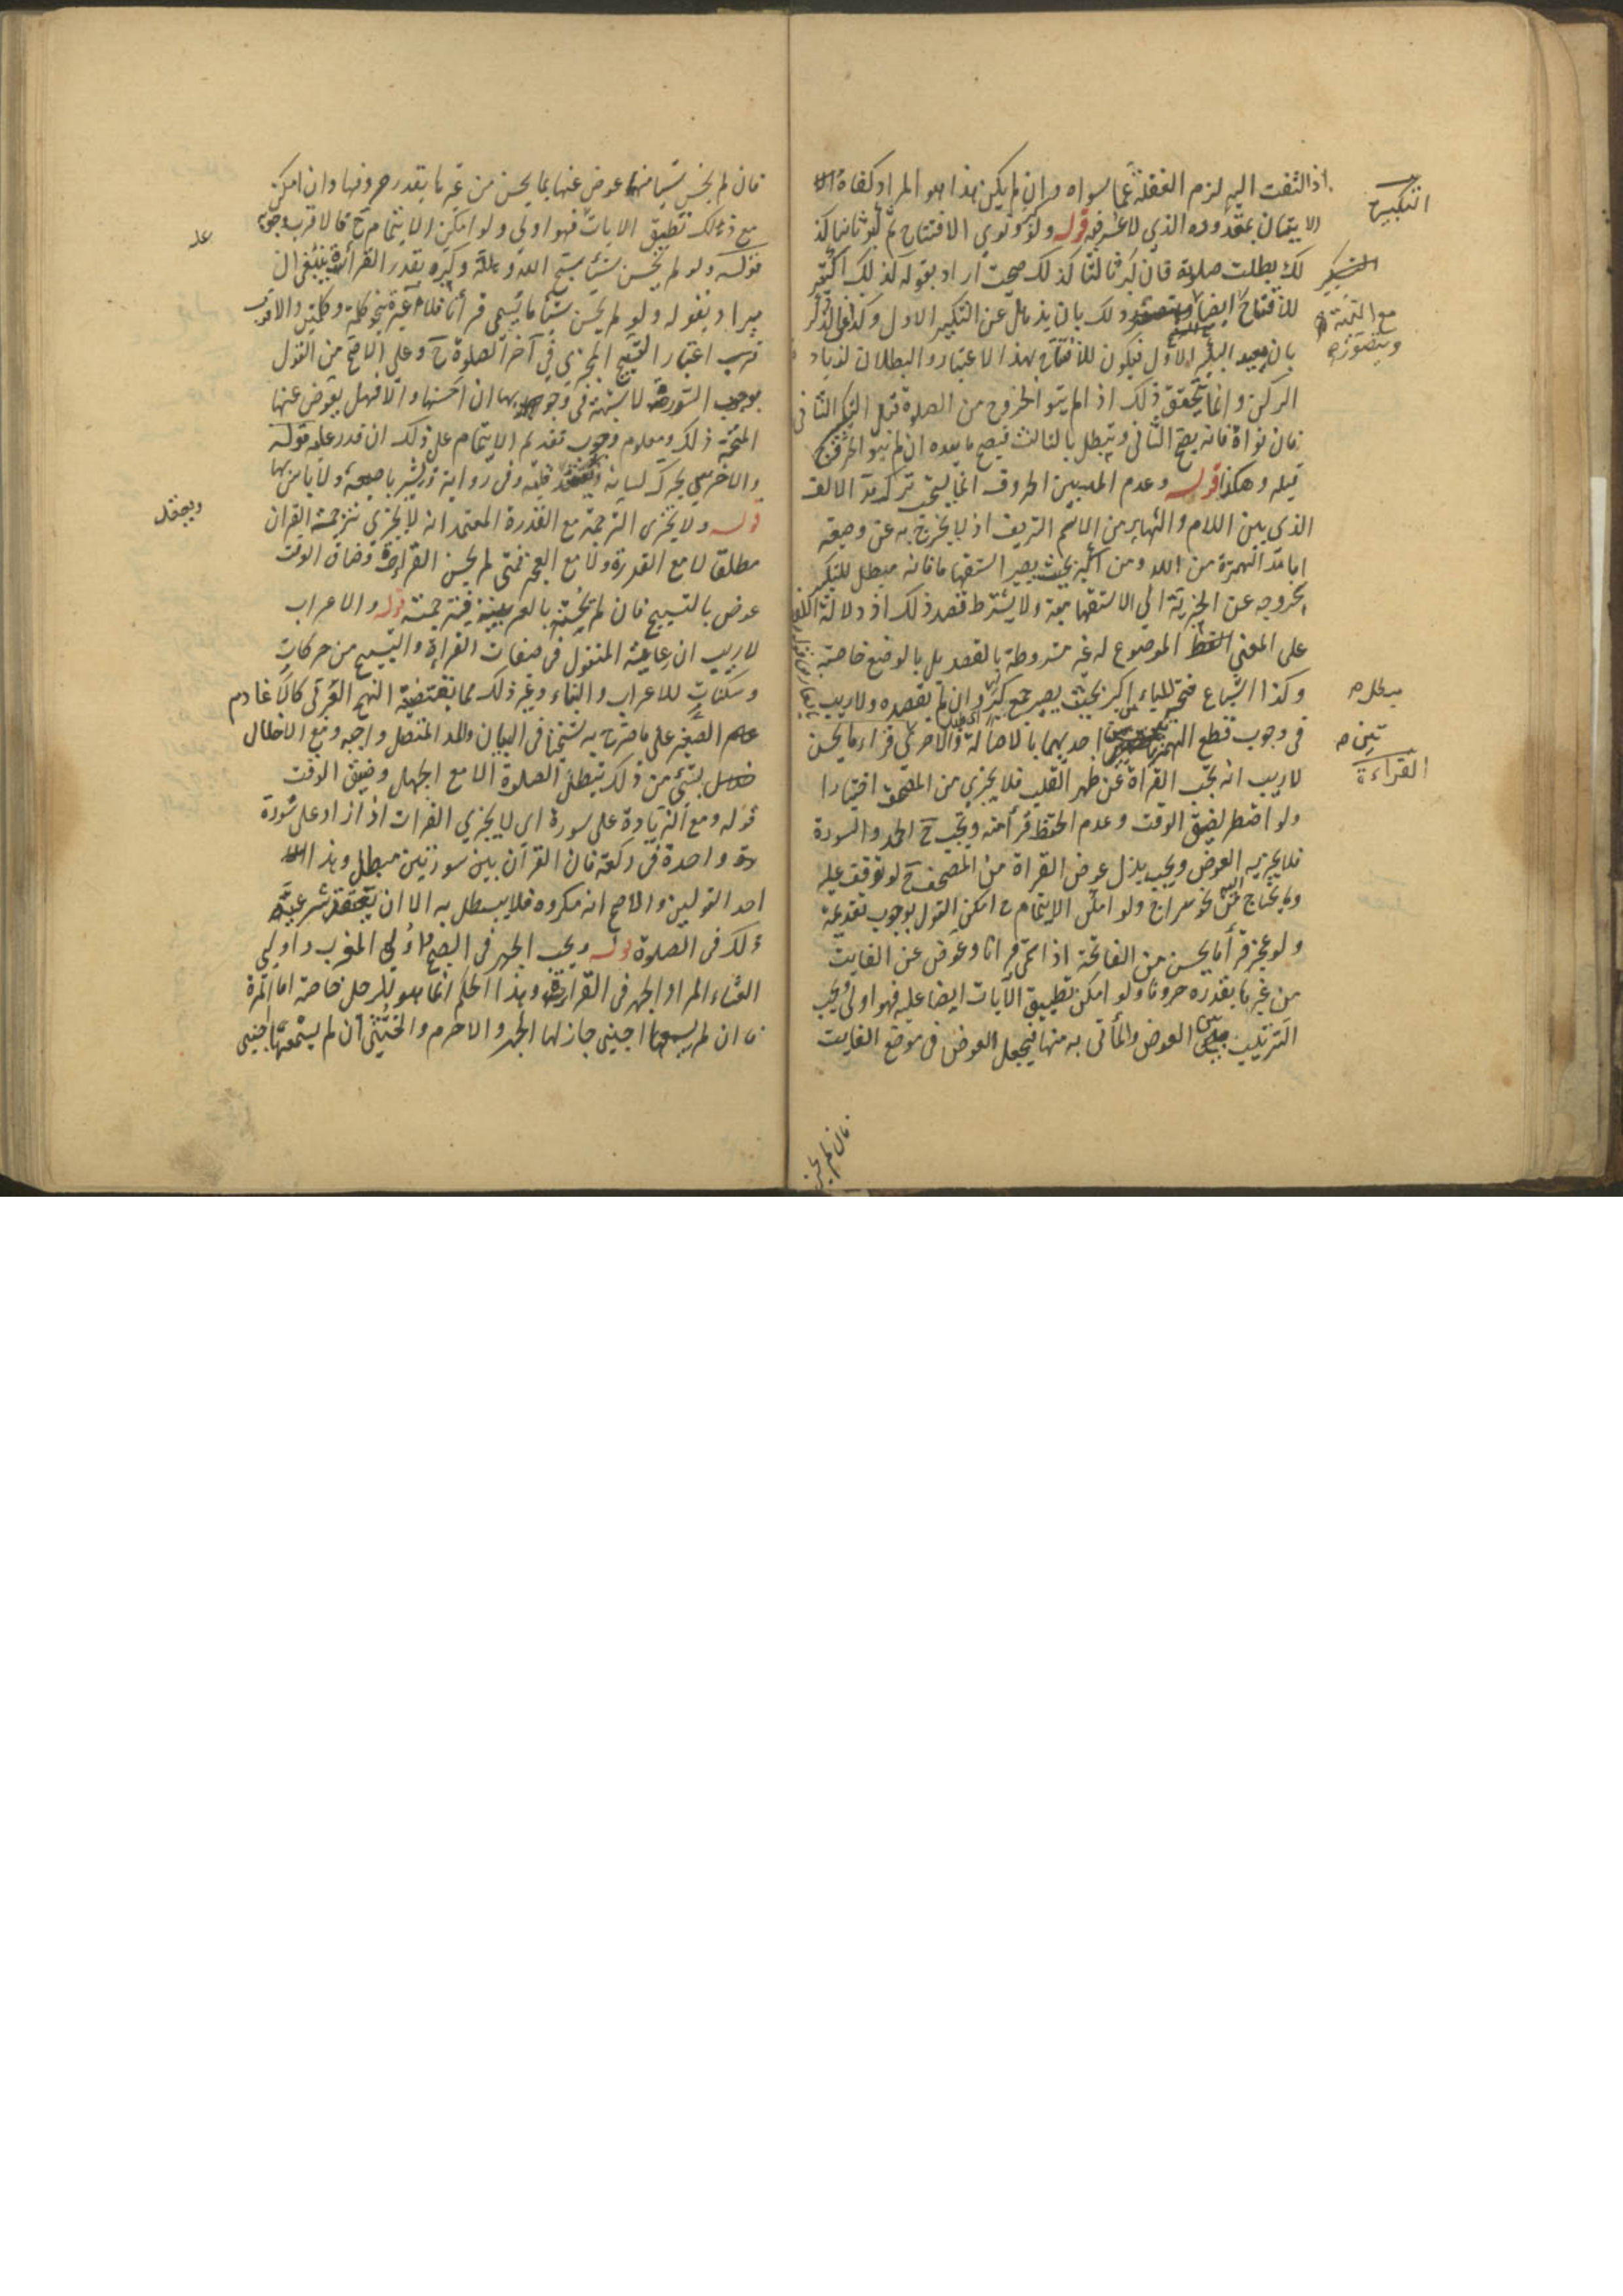 اذا التفت اليه لزم الغفلة عما سواه وان لم يكن هذا هو المراد كفاه
الاتيان بمقدوره الذي لا عسر فيه قوله ولو نوى الافتتاح ثم كبر ثانيا كذ
لك بطلت صلاته فان كبر ثالثا كذلك صحت اراد بقوله كذلك اكبر
للافتتاح ايضا ذلك بان يذهل عن التكبير الاول وكذا
الاول فيكون للافتتاح بهذا الاعتبار والبطلان لزياد
الركن وانما يتحقق ذلك اذا لم ينو الخروج من الصلوة قبل التكبير الثاني
فان نواه فانه يصح الثاني ويبطل بالثالث فيصح ما بعده ان لم ينو الخروج
قبله وهكذا قوله وعدم المد بين الحروف انما يستحب ترك مد الالف
الذي بين اللام والهاء من الاسم الشريف اذ لا يخرج به عن وضعه
اما مد الهمزة من الله ومن اكبر بحيث يصير استفهاما فانه مبطل للتكبير
لخروجه عن الخبرية الى الاستفهامية ولا يشترط قصد ذلك اذ دلالة اللفظ
على المعنى الموضوع له غير مشروطة بالقصد بل بالوضع خاصة
وكذا اشباع فتح الباء من اكبر بحيث يصير جمع كبر وان لم يقصده ولا ريب
في وجوب قطع الهمزتين احديهما بالاصالة والاخرى
لا ريب انه تجب القراءة عن ظهر القلب فلا يجزي من المصحف اختيارا
ولو اضطر لضيق الوقت وعدم الحفظ قرأ منه ويجب ح الحمد والسورة
فلا يجزيه العوض ويجب بذل عوض القراءة من المصحف ح لو توقف عليه
وما يحتاج اليه من نحو سراج ولو امكن الايتمام ح امكن القول بوجوب تقديمه
ولو عجز قرأ ما يحسن من الفاتحة اذا سمى قرانا وعوض عن الفايت
من غيرها بقدره حروفا ولو امكن تطبيق الآيات ايضا عليه فهو اولى ويجب
الترتيب بين العوض والمأتي به منها فيجعل العوض في موضع الفايت
فان لم يحسن
التكبير
مع النية
ويتصور
مبطل
تين
القراءة
فان لم يحسن شيا منها عوض عنها بما يحسن من غيرها بقدر حروفها وان امكن
مع ذلك تطبيق الايات فهو اولى ولو امكن الايتمام ح فالاقرب وجوبه
قوله ولو لم يحسن شيئا سبح الله وهلله وكبره بقدر القراءة ينبغي ان
يراد بقوله ولو لم يحسن شيئا ما يسمى قرأنا فلا عبرة بنحو كلمة وكلمتين والاقرب
قرب اعتبار التسبيح المجزي في آخر الصلوة ح وعلى الاصح من القول
بوجوب السورة لا شبهة في وجوبها ان احسنها والا فهل يعوض عنها
المتجه ذلك ومعلوم وجوب تقديم الايتمام على ذلك ان قدر عليه قوله
والاخرس يحرك لسانه قلبه وفي رواية ويشير باصبعه ولا باس بها
قوله ولا يجزي الترجمة مع القدرة المعتمد انه لا يجزي ترجمة القران
مطلقا لا مع القدرة ولا مع العجز فمتى لم يحسن القراءة وضاق الوقت
عوض بالتسبيح فان لم يحسنه بالعربية فيترجمته قوله والاعراب
لا ريب ان رعاية المنقول في صفات القراءة والتسبيح من حركات
وسكنات للاعراب والبناء وغير ذلك مما يقتضيه النهج العربي كالادغام
الصغير على ما صرح به شيخنا في البيان والمد المتصل واجبه ومع الاخلال
بشئ من ذلك تبطل الصلوة الا مع الجهل وضيق الوقت
قوله ومع الزيادة على سورة اي لا يجزي القرات اذا زاد على سورة
واحدة في ركعة فان القرآن بين سورتين مبطل وهذا
احد القولين والاصح انه مكروه فلا يبطل به الا ان يعتقد شرعية
ذلك في الصلوة قوله ويجب الجهر في الصبح واولي المغرب واولي
العشاء المراد الجهر في القراءة وهذا الحكم انما هو للرجل خاصة اما المرأة
فان لم يسمعها اجنبي جاز لها الجهر والا حرم والخنثى ان لم يسمعها اجنبي
عليه
ويعقد